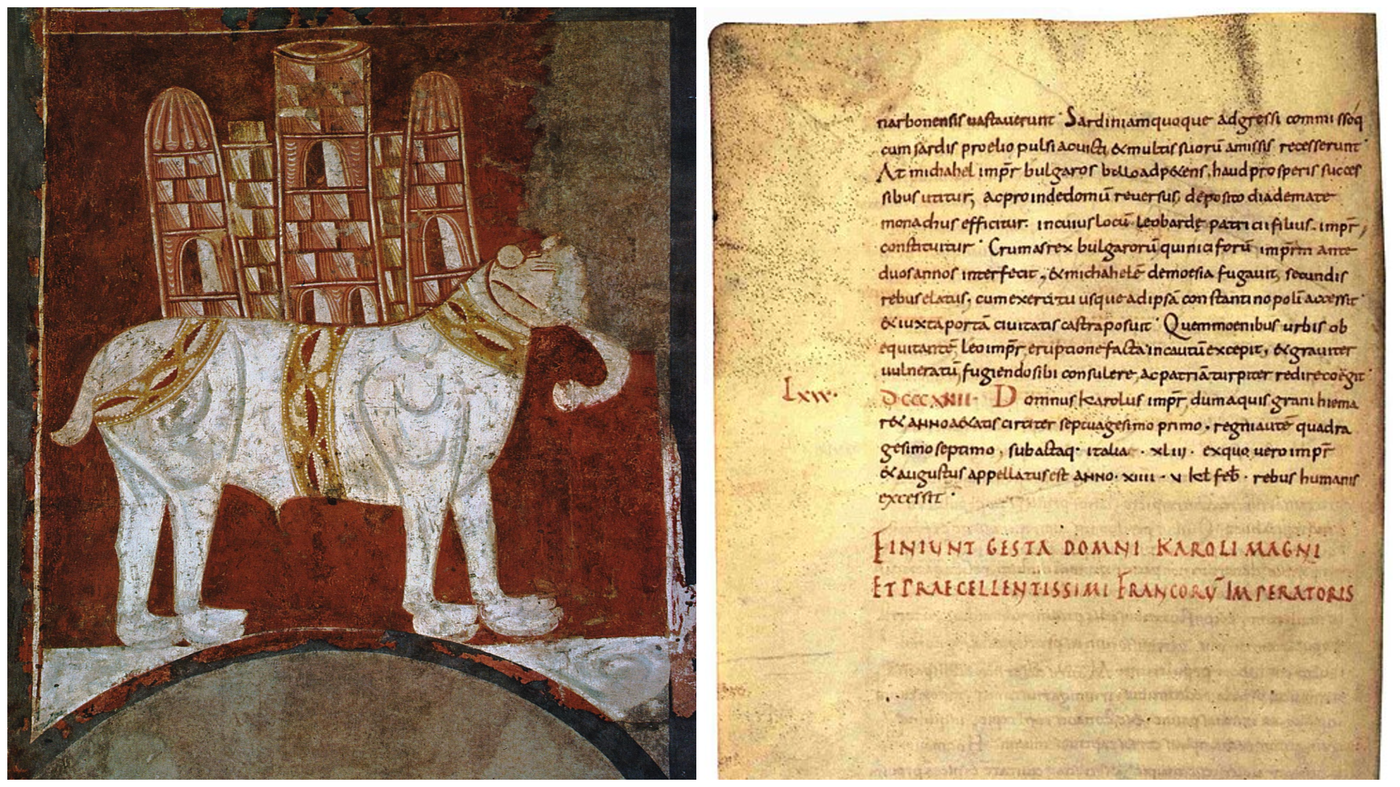 narbonensis uastauerunt · Sardiniam quoque adgressi commissoq
cum sardis proelio pulsi acuicti & multis suorū amissis recesserunt ·
At michahel impr̄ bulgaros bello adp&ens, haud prosperis succes
sibus utitur, ac proinde domū reuersus deposito diademate
monachus efficitur. in cuius locū leobardę patricii filius. impr̄,
constituitur · Crumas rex bulgarorū qui niciforū imprm̄ ante
duos annos interfecit, & michahelē de moesia fugauit, secundis
rebus elatus, cum exercitu usque ad ipsā constantinopolī accessit ·
& iuxta portā ciuitatis castra posuit · Quem moenibus urbis ob
equitantē, leo impr̄ eruptione facta incautū excepit, & grauiter
uulneratū, fugiendo sibi consulere, ac patriā turpiter redire coegit ·
Lxv. DCCCXIIII · Domnus Karolus impr̄ dum aquisgrani hiema
r& ANNO a&atis circiter septuagesimo primo, regni autē quadra
gesimo septimo, subactaq · italia · xliii · ex quo uero impr̄
& augustus appellatus est ANNO · xiiii · v kl feb · rebus humanis
excessit ·
FINIUNT GESTA DOMNI KAROLI MAGNI
ET PRAECELLENTISSIMI FRANCORŪ IMPERATORIS